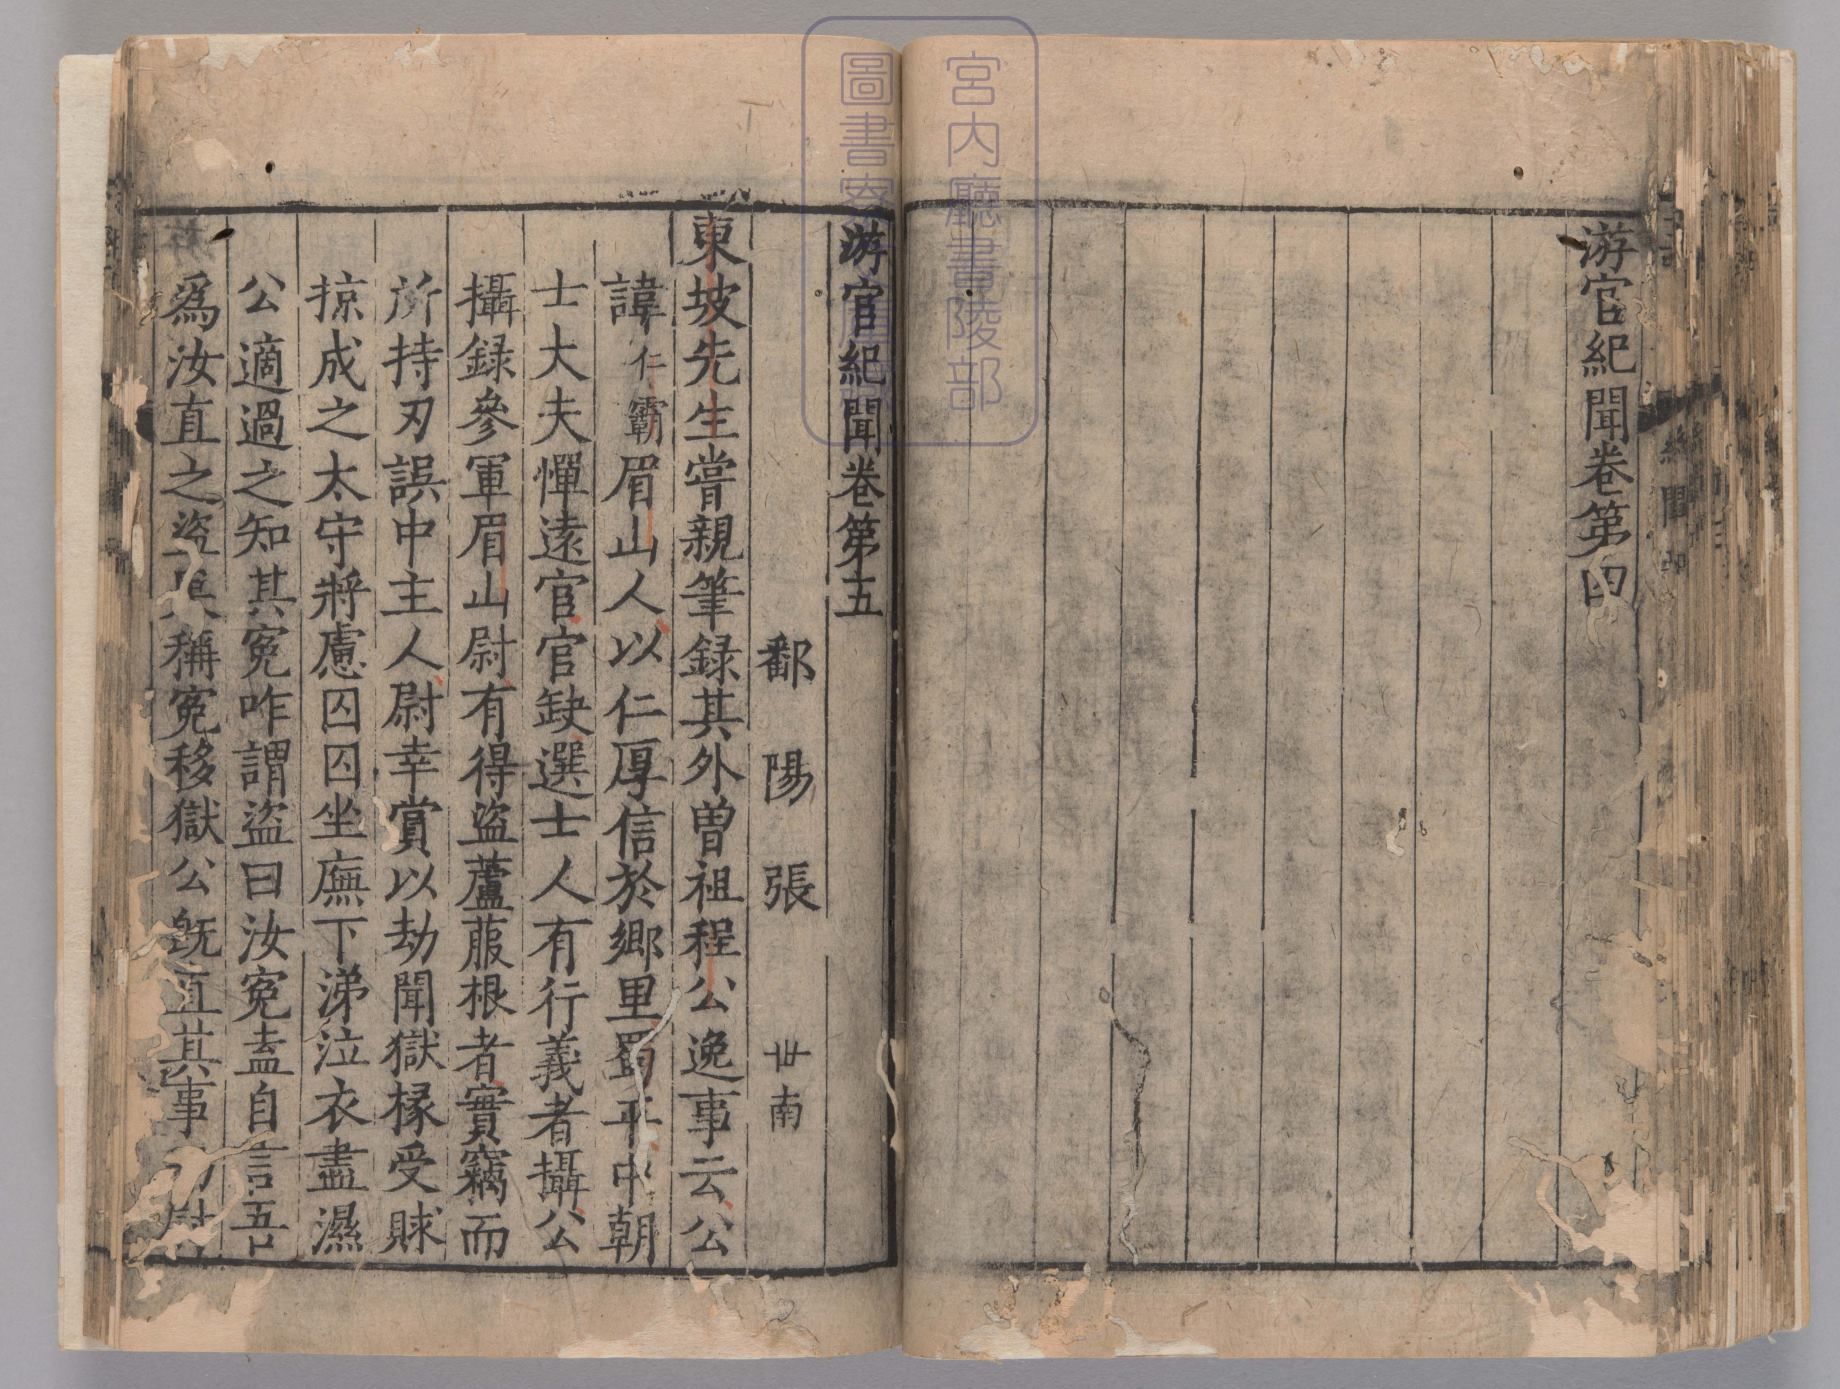 游宦紀聞卷第四
游宦紀聞卷第五
鄱陽張世南
東坡先生嘗親筆録其外曽祖程公逸事云公
諱仁霸眉山人以仁厚信於鄉里蜀平中朝
士大夫憚遠官官缺選士人有行義者攝公
攝録參軍眉山尉有得盜蘆菔根者實竊而
所持刃誤中主人尉幸賞以劫聞獄掾受賕
掠成之太守將慮囚囚坐廡下涕泣衣盡濕
公適過之知其寃咋謂盜曰汝寃盍自言吾
爲汝直之盜稱寃移獄公旣直其事
宮内廳書陵部
圖書寮